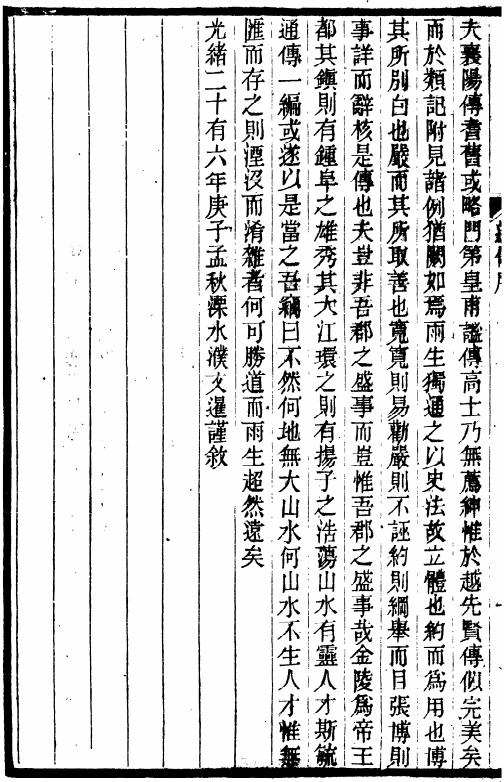 夫襄陽傳耆舊或略門第皇甫謐傳高士乃無薦紳惟於越先賢傳似完美矣
而於類記附見諸例猶闕如焉雨生獨通之以史法故立體也約而爲用也博
其所別白也嚴而其所取善也寬寬則易勸嚴則不誣約則綱舉而目張博則
事詳而辭核是傳也夫豈非吾郡之盛事而豈惟吾郡之盛事哉金陵爲帝王
都其鎭則有鍾阜之雄秀其大江環之則有揚子之浩蕩山水有靈人才斯毓
通傳一編或遂以是當之吾竊曰不然何地無大山水何山水不生人才惟無
滙而存之則湮沒而淆雜者何可勝道而雨生超然遠矣
光緒二十有六年庚子孟秋溧水濮文暹謹敘